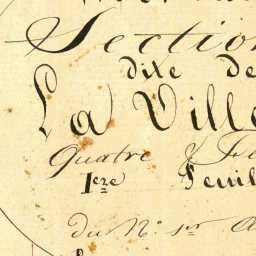 Section
dite de
La Ville
Quatre
1ere Feuil
du N° 1er A